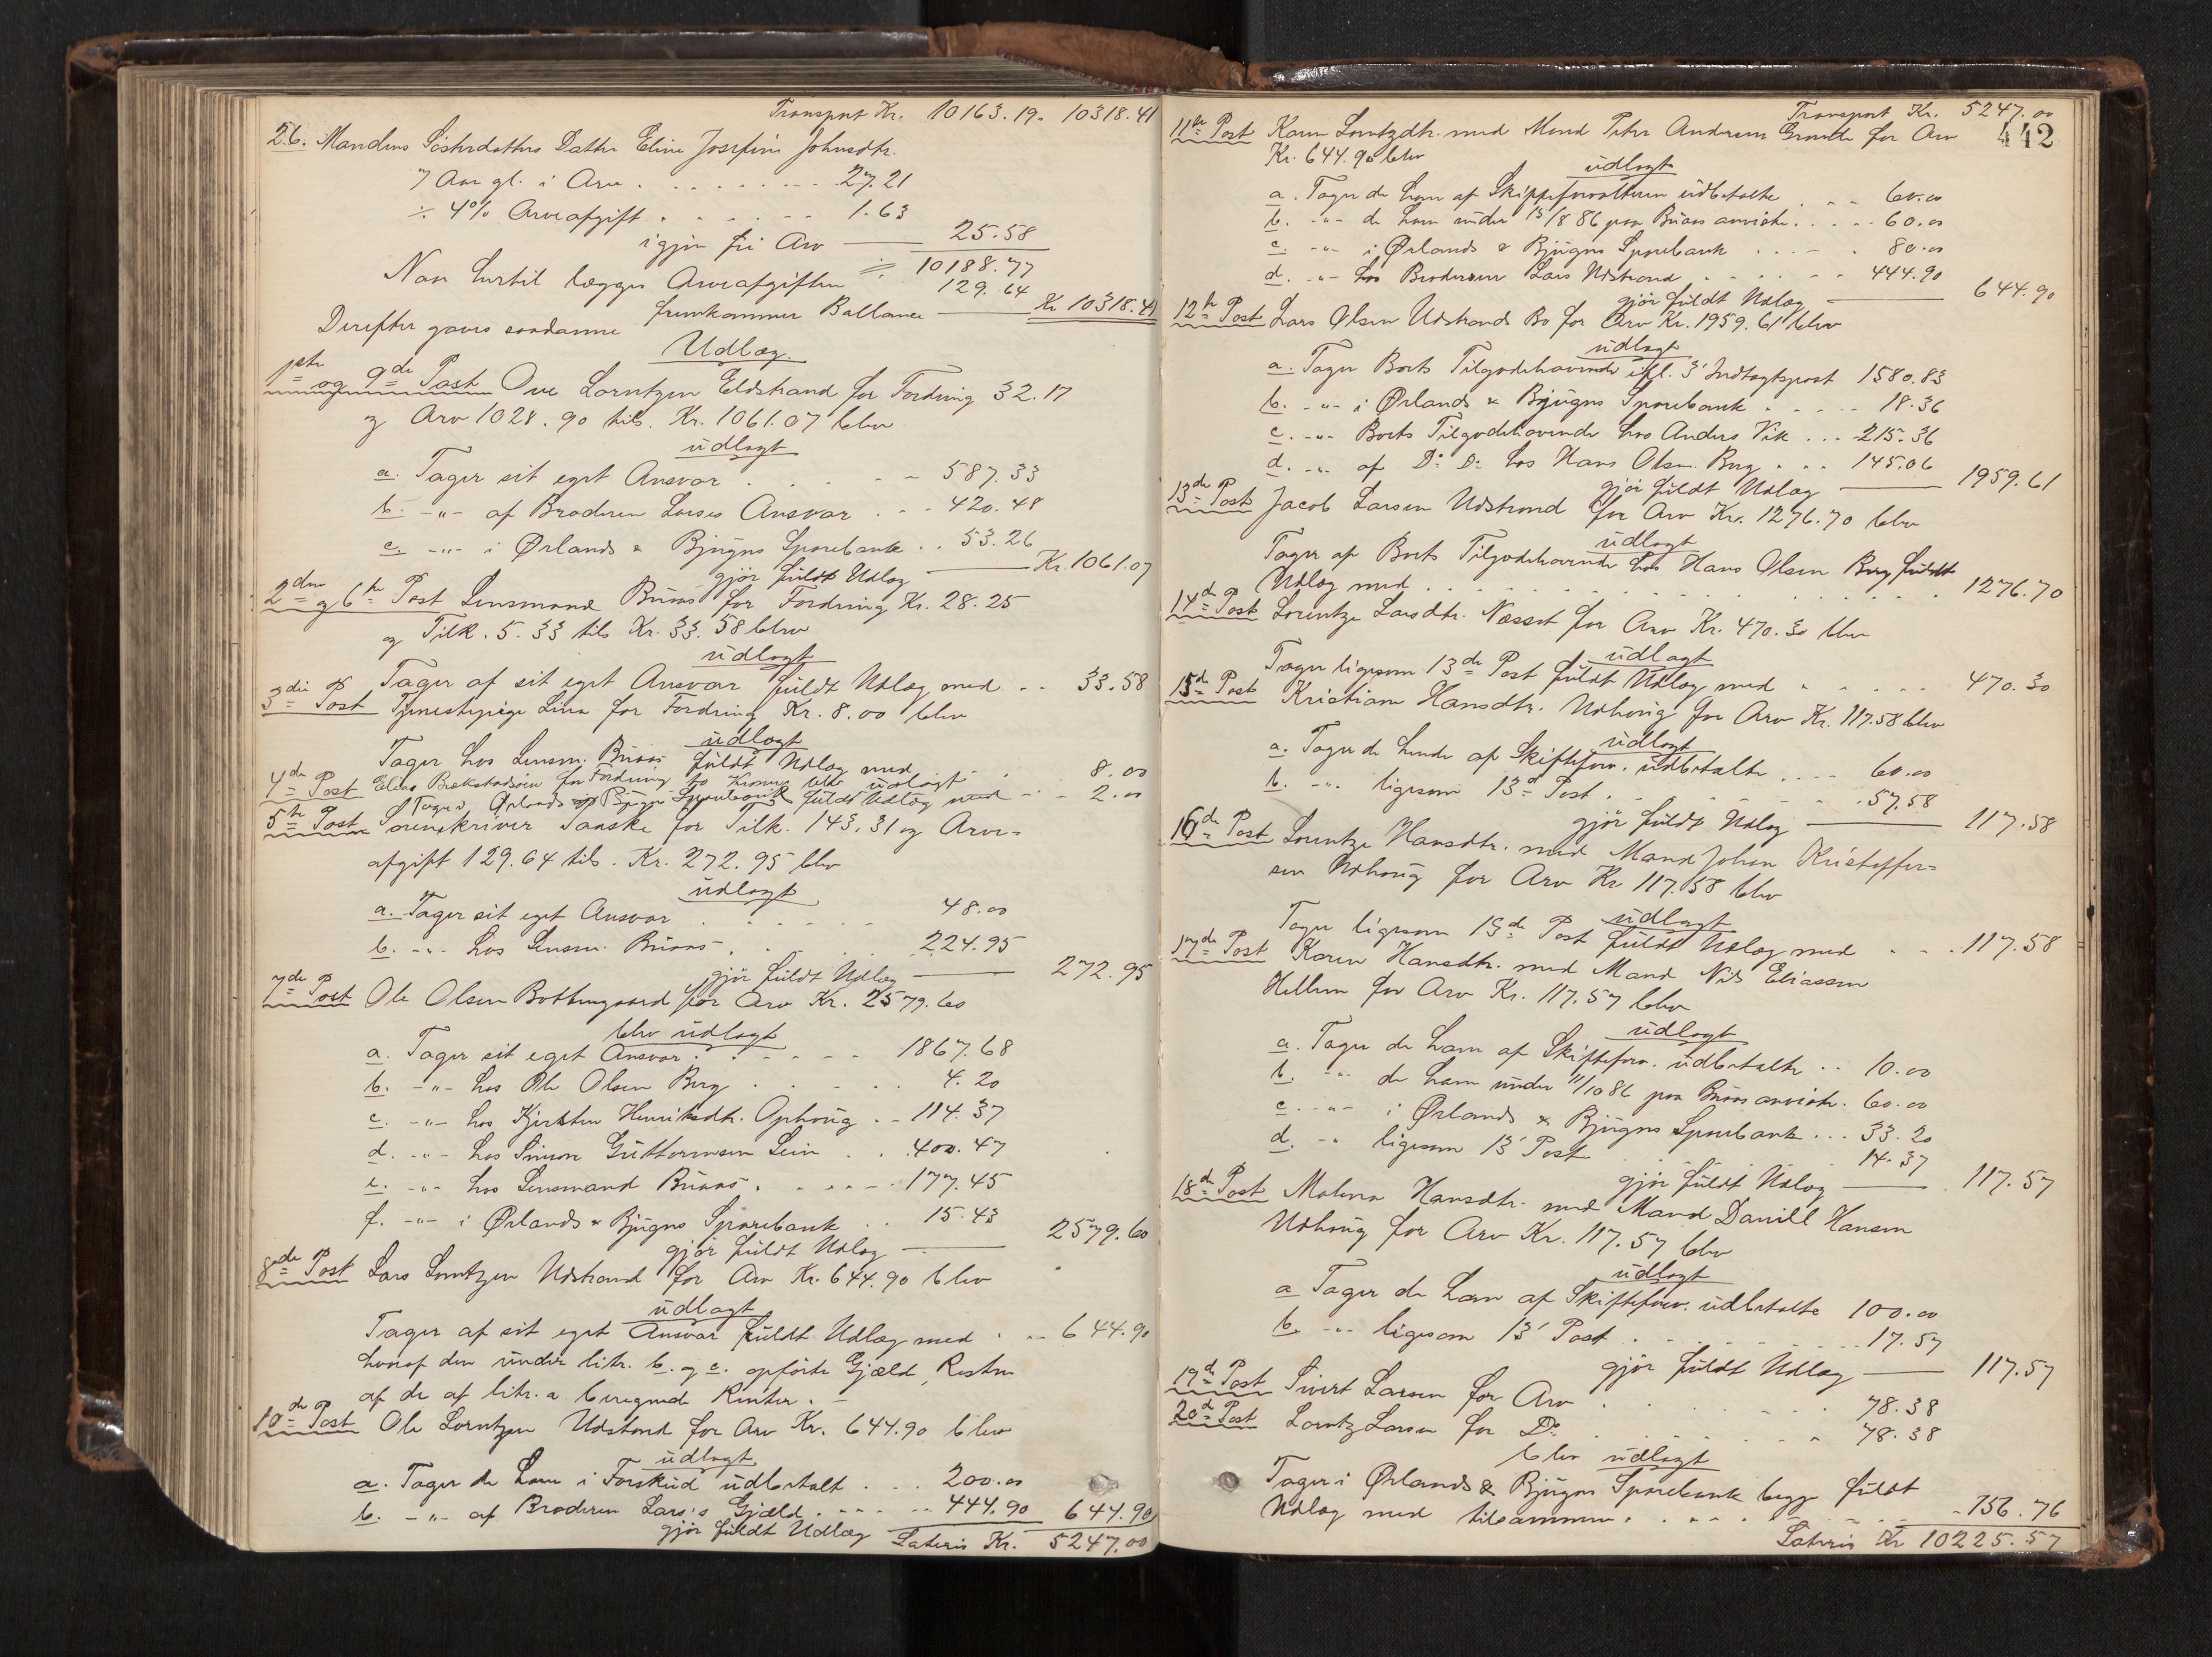 Transport Kr. 10163.19. 10318.41
26. Mandens Søsterdatters Datter Eline Josefine Johnsdtr.
7 Aar gl. i Arv . . . . . . . 27.21
÷ 4% Arveafgift . . . . . . 1.63
igjen fri Arv — 25.58
10188.77
Naar hertil lægges Arveafgiften 129.64
fremkommer Ballance — Kr 10318.41
Derefter gaves saadanne
Udlæg.
1ste og 9de Post Ove Lorntzen Eldstrand for Fordring 32.17
og Arv 1028.90 tils. Kr. 1061.07 blev
udlagt
a. Tager sit eget Ansvar . . . . . 587.33
b. -"- af Broderen Larses Ansvar . . . 420.48
c. -"- i Ørlands & Bjugns Sparebank . . 53.26
gjør fuldt Udlæg — Kr. 1061.07
2den og 6te Post Lensmand Buaas for Fordring Kr. 28.25
og Tilk. 5.33 tils Kr. 33.58 blev
udlagt
Tager af sit eget Ansvar fuldt Udlæg med . . 33.58
3die Post Tjenestepige Lina for Fordring Kr. 8.00 blev
udlagt
Tager hos Lensm. Buaas fuldt Udlæg med . . 8.00
4de Post Elias Brekstadsøen for Fordring to Kroner blev udlagt
Tager i Ørlands og Bjugns Sparebank fuldt Udlæg med . . 2.00
5te Post Sorenskriver Tanske for Tilk. 143.31 og Arve-
afgift 129.64 tils. Kr. 272.95 blev
udlagt
a. Tager sit eget Ansvar . . . . . . 48.00
b. -"- hos Lensm. Buaas . . . . . 224.95
gjør fuldt Udlæg — 272.95
7de Post Ole Olsen Bottengaard for Arv Kr. 2579.60
blev udlagt
a. Tager sit eget Ansvar . . . . . . 1867.68
b. -"- hos Ole Olsen Berg . . . . . 4.20
c. -"- hos Kjersten Henriksdtr. Ophaug . . 114.37
d. -"- hos Simon Guttormsen Lein . . . 400.47
e. -"- hos Lensmand Buaas . . . . . 177.45
f. -"- i Ørlands & Bjugns Sparebank . . 15.43
gjør fuldt Udlæg — 2579.60
8de Post Lars Lorntzen Udstrand for Arv Kr. 644.90 blev
udlagt
Tager af sit eget Ansvar fuldt Udlæg med . . . 644.90
hvoraf den under litr. b. og c. opførte Gjæld, Resten
af de af litr. a beregnede Renter.
10de Post Ole Lorntzen Udstrand for Arv Kr. 644.90 blev
udlagt
a. Tager de ham i Forskud udbetalt . . . 200.00
b. -"- af Broderen Lars's Gjæld . . . . 444.90 644.90
gjør fuldt Udlæg Lateris Kr. 5247.00
Transport Kr. 5247.00
442
11te Post Karen Lorntzdtr. med Mand Peter Andersen Grande for Arv
Kr. 644.90 blev
udlagt
a. Tager de ham af Skifteforvalteren udbetalte . . . 60.00
b. -"- de ham under 13/8 86 paa Buaas anviste . . . . 60.00
c. -"- i Ørlands & Bjugns Sparebank . . . . . 80.00
d. -"- hos Broderen Lars Udstrand . . . . . 444.90
gjør fuldt Udlæg — 644.90
12te Post Lars Olsen Udstrands Bo for Arv Kr. 1959.61 blev
udlagt
a. Tager Boets Tilgodehavende ifl. 3' Indtægtspost 1580.83
b. -"- i Ørlands & Bjugns Sparebank . . . . . 18.36
c. -"- Boets Tilgodehavende hos Anders Vik . . . 215.36
d. -"- af Do. Do. hos Hans Olsen Berg . . . 145.06
gjør fuldt Udlæg — 1959.61
13de Post Jacob Larsen Udstrand for Arv Kr. 1276.70 blev
udlagt
Tager af Boets Tilgodehavende hos Hans Olsen Berg fuldt
Udlæg med . . . . . . . . . . 1276.70
14de Post Lorentze Larsdtr. Næsset for Arv Kr. 470.30 blev
udlagt
Tager ligesom 13de Post fuldt Udlæg med . . . . . 470.30
15de Post Kristiane Hansdtr. Udhaug for Arv Kr. 117.58 blev
udlagt
a. Tager de hende af Skifteforv. udbetalte . . . . 60.00
b. -"- ligesom 13de Post . . . . . . . 57.58
gjør fuldt Udlæg — 117.58
16de Post Lorentze Hansdtr. med Mand Johan Kristoffer-
sen Udhaug for Arv Kr. 117.58 blev
udlagt
Tager ligesom 13de Post fuldt Udlæg med . . . 117.58
17de Post Karen Hansdtr. med Mand Nils Eliassen
Hellem for Arv Kr. 117.57 blev
udlagt
a. Tager de ham af Skifteforv. udbetalte . . 10.00
b. -"- de ham under 11/10 86 paa Buaas anviste . 60.00
c. -"- i Ørlands & Bjugns Sparebank . . . 33.20
d. -"- ligesom 13' Post . . . . . . . 14.37
gjør fuldt Udlæg — 117.57
18de Post Malena Hansdtr. med Mand Daniell Hansen
Udhaug for Arv Kr. 117.57 blev
udlagt
a Tager de ham af Skifteforv. udbetalte 100.00
b. -"- ligesom 13' Post . . . . . . . 17.57
gjør fuldt Udlæg — 117.57
19de Post Sivert Larsen for Arv . . . . . . 78.38
20de Post Lorntz Larsen for Do. . . . . . . 78.38
blev udlagt
Tager i Ørlands & Bjugns Sparebank begge fuldt
Udlæg med tilsammen . . . . . . . . 156.76
Lateris Kr 10225.57